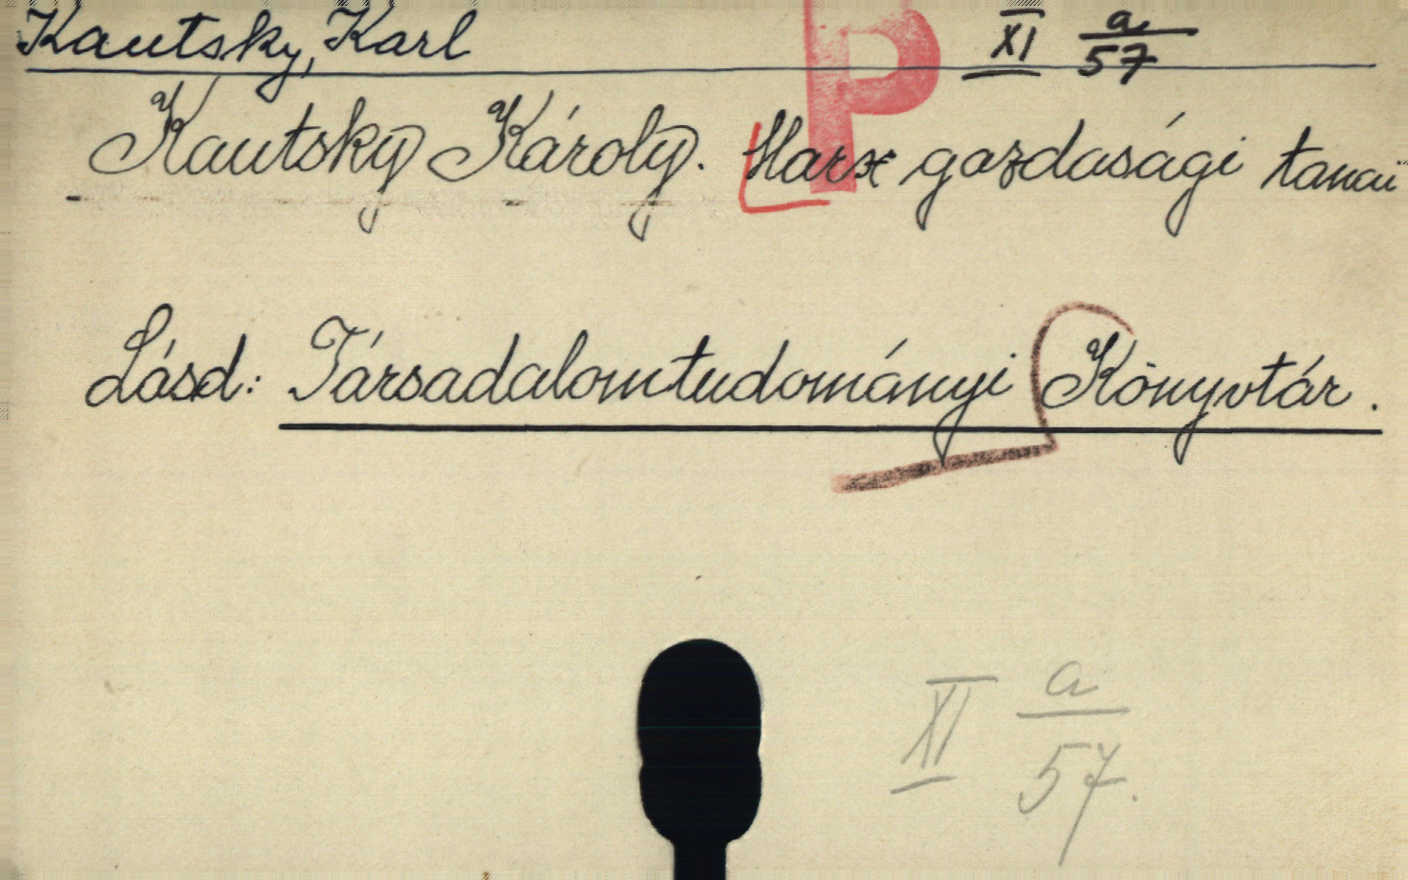 Kautsky, Karl P XI a/57
Kautsky Károly. Marx gazdasági tanai
Lásd: Társadalomtudományi Könyvtár.
XI a/57.